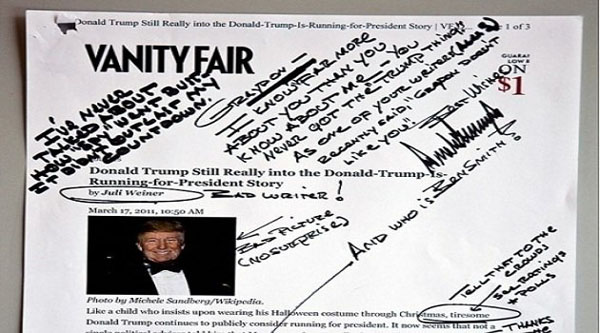 Donald Trump Still Really into the Donald-Trump-Is-Running-for-President Story | VF... Page 1 of 3
VANITY FAIR
GUARAN
LOW R
ON
$1
GRAYDON—
I KNOW FAR MORE
ABOUT YOU THAN YOU
KNOW ABOUT ME — YOU
NEVER GOT THE TRUMP THING
AS ONE OF YOUR WRITERS
RECENTLY SAID, "GRAYDON DOESN'T
LIKE YOU". BEST WISHES
I'VE NEVER
TALKED ABOUT
IT DIDN'T
COUNTDOWN.
Donald Trump Still Really into the Donald-Trump-Is-
Running-for-President Story
by Juli Weiner
BAD WRITER!
March 17, 2011, 10:50 AM
BAD PICTURE
(NO SURPRISE)
AND WHO IS BEN SMITH?
TELL THAT TO THE
CROWDS
SEE RATINGS
+ POLLS
Photo by Michele Sandberg/Wikipedia.
Like a child who insists upon wearing his Halloween costume through Christmas, tiresome
Donald Trump continues to publicly consider running for president. It now seems that not a
THANKS